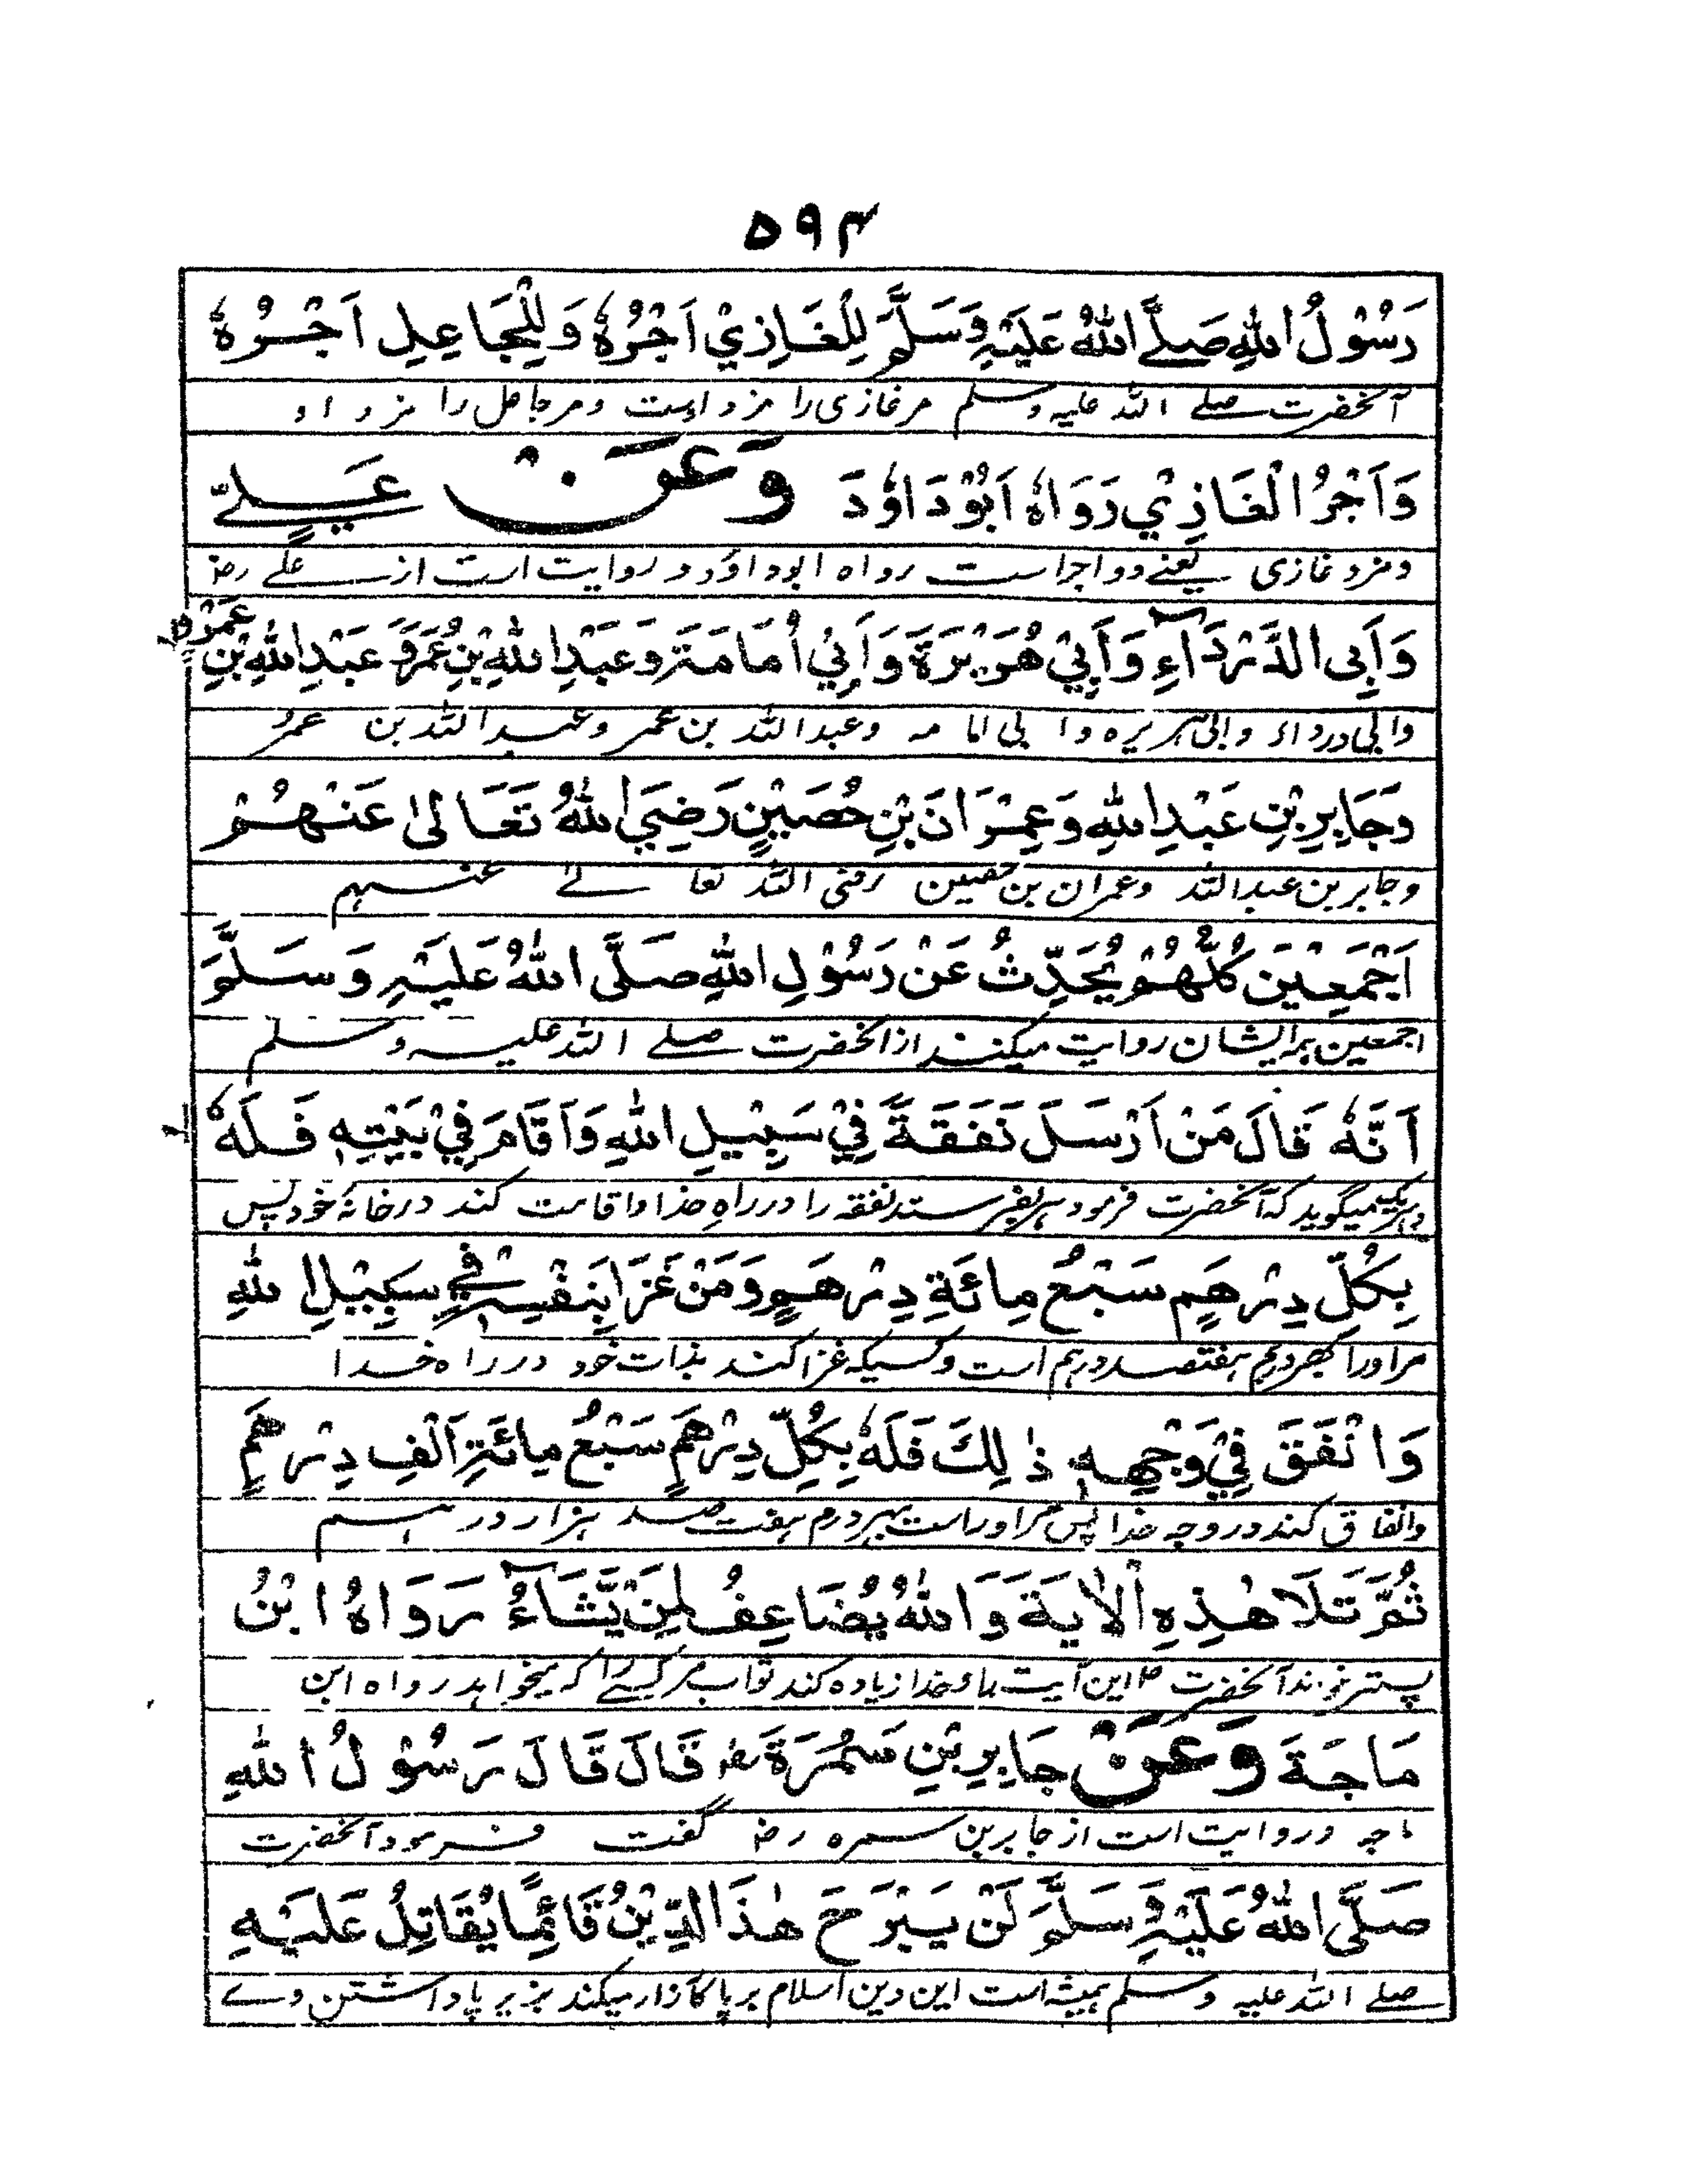 ۵۹۴
رَسُوْلُ اللهِ صَلَّے اللهُ عَلَيْهِ وَسَلَّمَ لِلْغَازِيْ اَجْرُهٗ وَلِلْجَاعِلِ اَجْرُهٗ
آنحضرت صلے اللہ علیہ وسلم مر غازی را مزد اوست ومر جاعل را مزد او
وَاَجْرُ الْغَازِيْ رَوَاهُ اَبُوْدَاوٗدَ وَعَنْ عَلِيٍّ
ومزد غازی یعنے دو اجر است رواه ابوداود و روایت است از علے رضہ
وَاَبِى الدَّرْدَآءِ وَاَبِيْ هُرَيْرَةَ وَاَبِيْ اُمَامَةَ وَعَبْدِ اللهِ بْنِ عُمَرَ وَعَبْدِ اللهِ بْنِ عَمْرٍو
وابی درداء وابی هریره وابی امامه وعبدالله بن عمر وعبدالله بن عمرو
وَجَابِرِ بْنِ عَبْدِ اللهِ وَعِمْرَانَ بْنِ حُصَيْنٍ رَضِيَ اللهُ تَعَالٰى عَنْهُمْ
وجابر بن عبدالله وعمران بن حصین رضی الله تعالے عنهم
اَجْمَعِيْنَ كُلُّهُمْ يُحَدِّثُ عَنْ رَسُوْلِ اللهِ صَلَّى اللهُ عَلَيْهِ وَسَلَّمَ
اجمعین همه ایشان روایت میکنند از آنحضرت صلے الله علیه وسلم
اَنَّهٗ قَالَ مَنْ اَرْسَلَ نَفَقَةً فِيْ سَبِيْلِ اللهِ وَاَقَامَ فِيْ بَيْتِهٖ فَلَهٗ
میگوید که آنحضرت فرمود هر بفرستد نفقه را در راه خدا واقامت کند در خانهٔ خود پس
بِكُلِّ دِرْهَمٍ سَبْعُ مِائَةِ دِرْهَمٍ وَمَنْ غَزَا بِنَفْسِهٖ فِيْ سَبِيْلِ اللهِ
مر او را بهر درهم هفتصد درهم است و کسیکه غزا کند بذات خود در راه خدا
وَانْفَقَ فِيْ وَجْهِهٖ ذٰلِكَ فَلَهٗ بِكُلِّ دِرْهَمٍ سَبْعُ مِائَةِ اَلْفِ دِرْهَمٍ
وانفاق کند در وجه خدا پس مر او راست بهر درم هفت صد هزار درهم
ثُمَّ تَلَا هٰذِهِ الْاٰيَةَ وَاللهُ يُضَاعِفُ لِمَنْ يَّشَآءُ رَوَاهُ ابْنُ
آنحضرت ص این آیت خدا زیاده کند ثواب هر کسے را که میخواهد رواه ابن
مَاجَةَ وَعَنْ جَابِرِ بْنِ سَمُرَةَ رضہ قَالَ قَالَ رَسُوْلُ اللهِ
ماجه و روایت است از جابر بن سمره رضہ گفت فرمود آنحضرت
صَلَّى اللهُ عَلَيْهِ وَسَلَّمَ لَنْ يَبْرَحَ هٰذَا الدِّيْنُ قَائِمًا يُقَاتِلُ عَلَيْهِ
صلے الله علیه وسلم همیشه است این دین اسلام برپا کارزار میکند بر پا داشتن وے